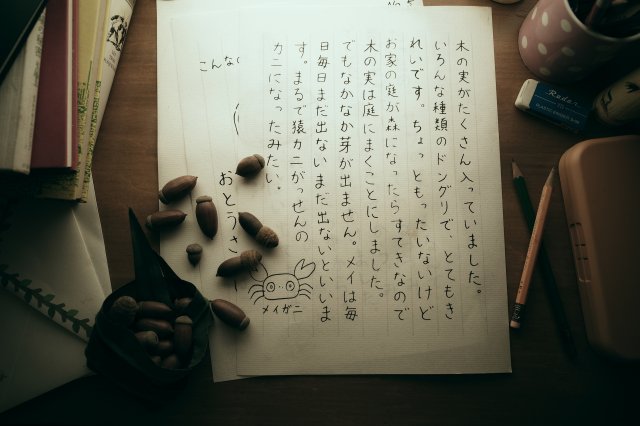 木の実がたくさん入っていました。
いろんな種類のドングリで、とてもき
れいです。ちょっともったいないけど
お家の庭が森になったらすてきなので
木の実は庭にまくことにしました。
でもなかなか芽が出ません。メイは毎
日毎日まだ出ないまだ出ないといいま
す。まるで猿カニがっせんの
カニになったみたい。
メイガニ
こんな
おとうさ
Radar